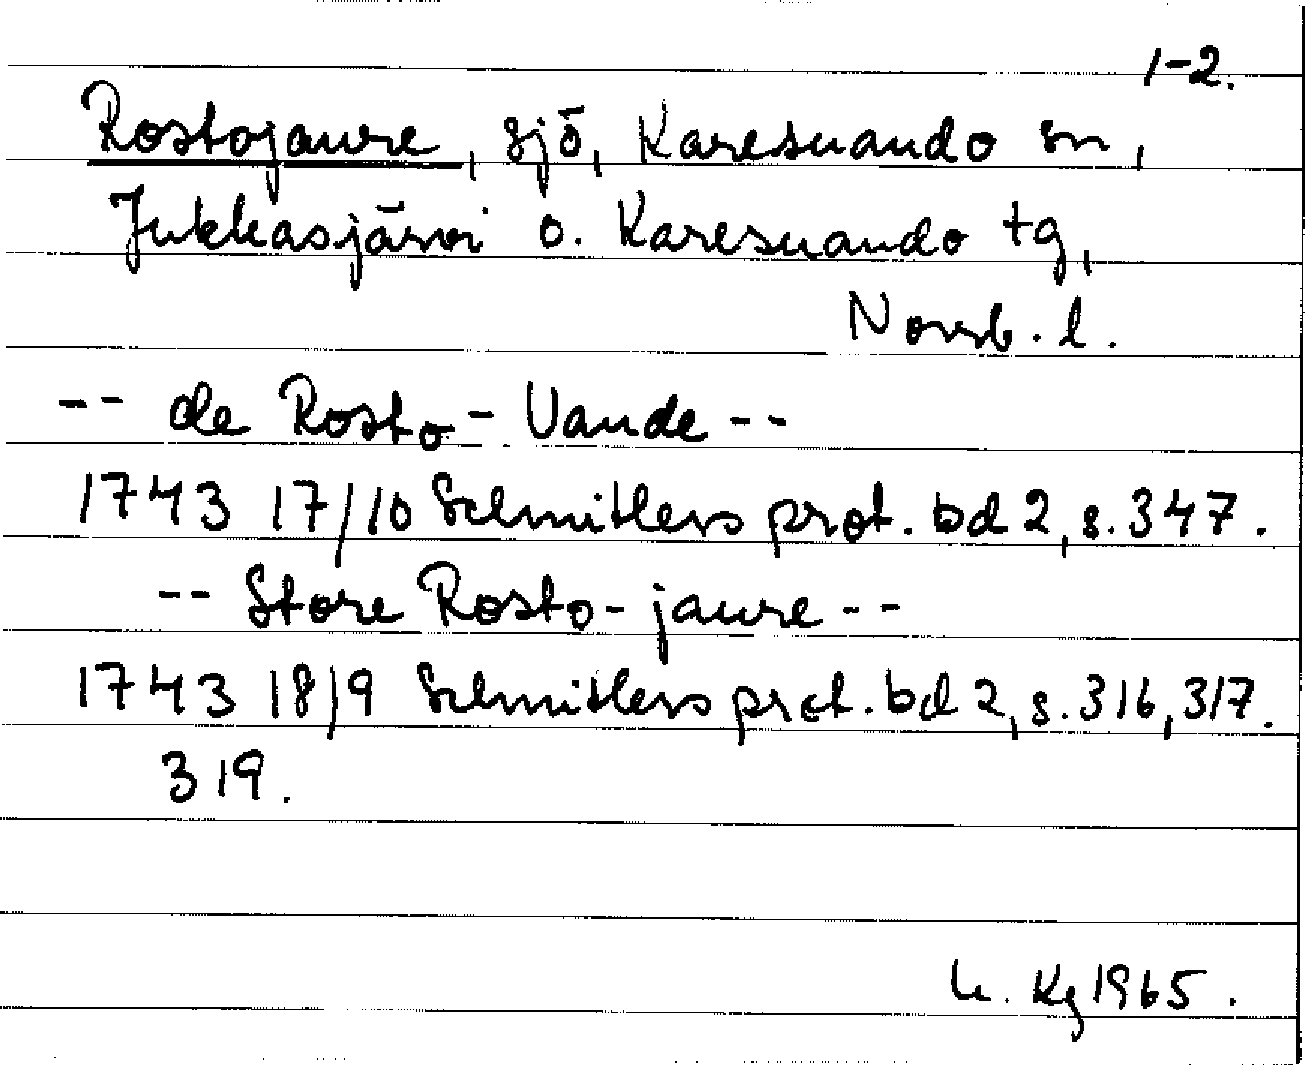 1-2.
Rostojaure, sjö, Karesuando sn,
Jukkasjärvi o. Karesuando tg,
Norrb. l.
-- de Rosto-Vande --
1743 17/10 Schnitlers prot. bd 2, s. 347.
-- Store Rosto-jaure --
1743 18/9 Schnitlers prot. bd 2, s. 316, 317.
319.
Kg 1965.